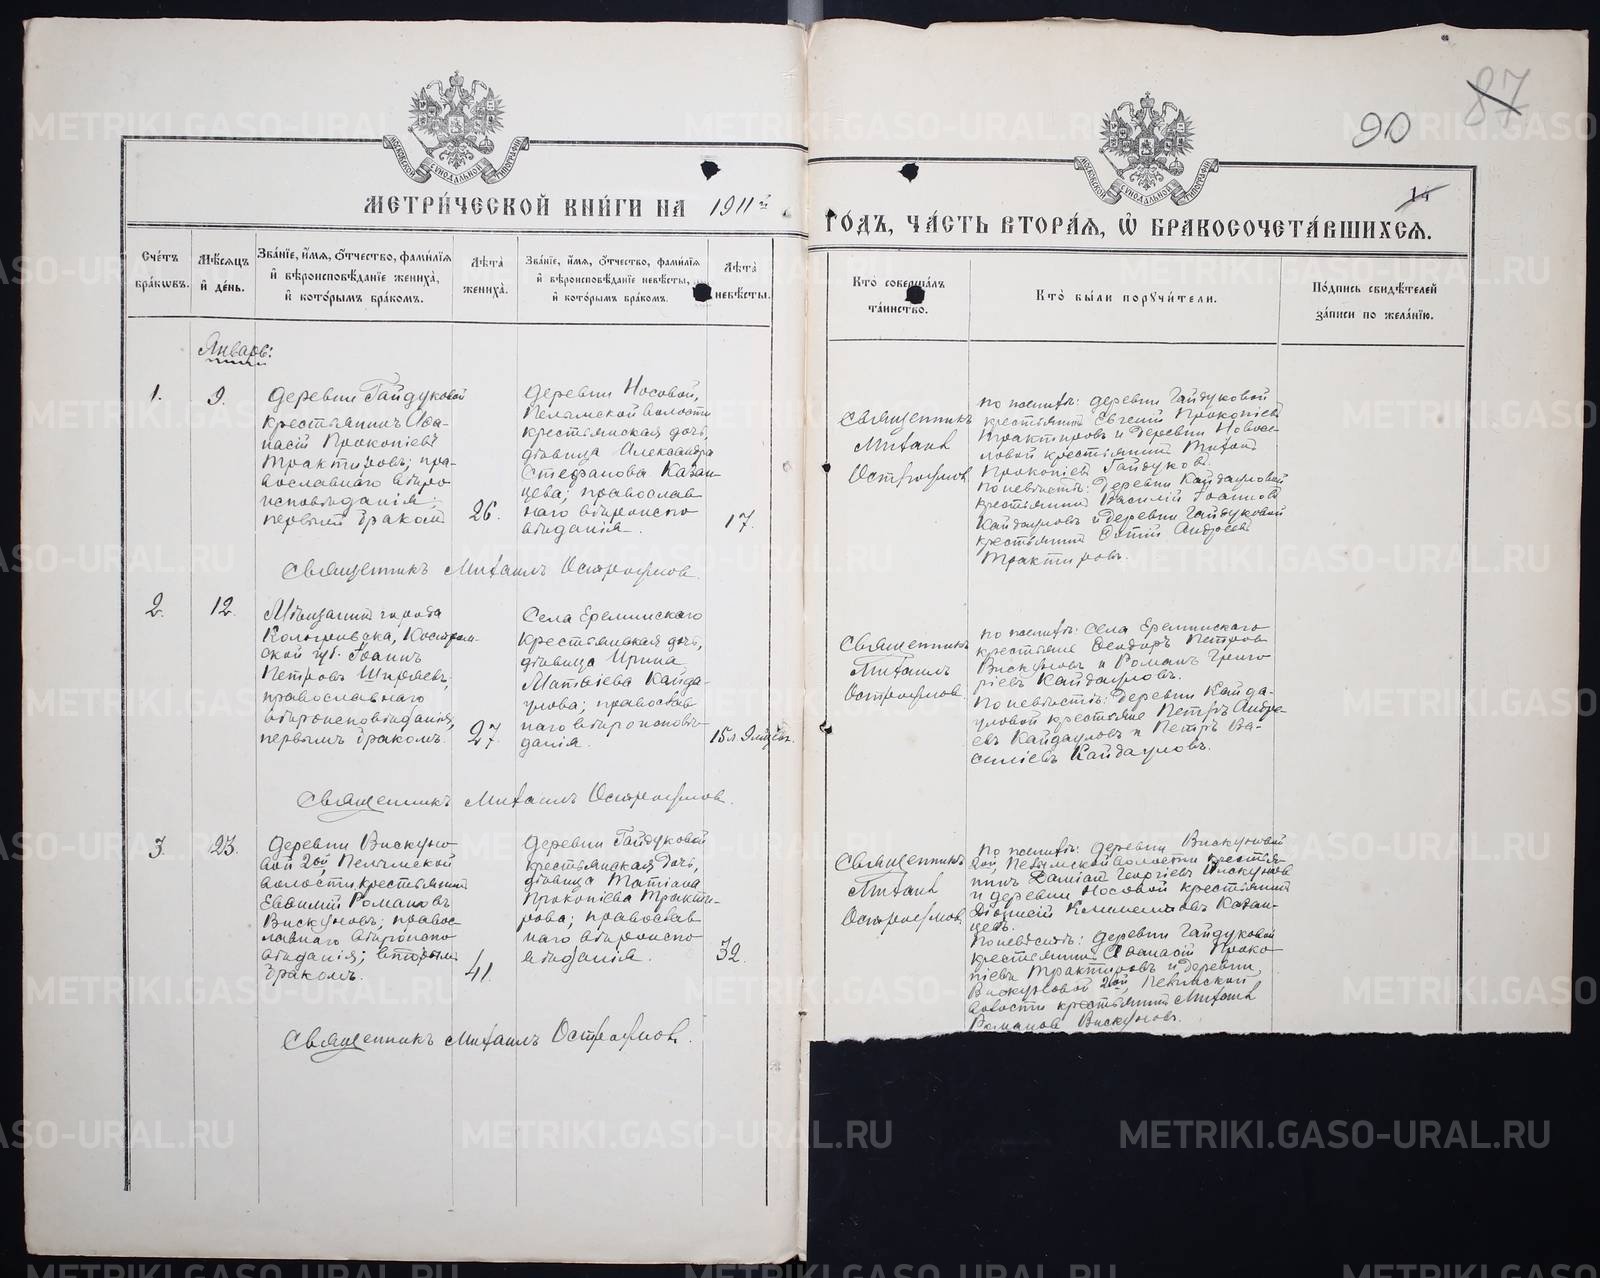 90
87
МОСКОВСКОЙ СѴНОДАЛЬНОЙ ТИПОГРАФІИ
МОСКОВСКОЙ СѴНОДАЛЬНОЙ ТИПОГРАФІИ
МЕТРИ́ЧЕСКОЙ КНИ́ГИ НА 1911й
ГОДЪ, ЧА́СТЬ ВТОРА́Я, Ѽ БРАКОСОЧЕТА́ВШИХСЯ.
Сче́тъ бра́ковъ.
Мѣ́сяцъ и҆ де́нь.
Зва́нїе, и҆́мя, о҆́тчество, фами́лїя и҆ вѣроисповѣ́данїе жениха̀, и҆ кото́рымъ бра́комъ.
Лѣ́та жениха̀.
Зва́нїе, и҆́мя, о҆́тчество, фами́лїя и҆ вѣроисповѣ́данїе невѣ́сты, и҆ кото́рымъ бра́комъ.
Лѣ́та невѣ́сты.
Кто̀ соверша́лъ та́инство.
Кто̀ бы́ли порꙋчи́тели.
По́дпись свидѣ́телей за́писи по жела́нїю.
Январь:
1.
9.
Деревни Гайдуковой
крестьянинъ Афа-
насій Прокопіевъ
Трактировъ; пра-
вославнаго вѣро
исповѣданія;
первымъ бракомъ
26.
Деревни Носовой,
Пелымской волости
крестьянская дочь,
дѣвица Александра
Стефанова Казан-
цева; православ
наго вѣроиспо
вѣданія.
17.
Священникъ
Михаилъ
Остроумовъ
По женихѣ: деревни Гайдуковой
крестьянинъ Евгений Прокопіевъ
Трактировъ и деревни Новосе-
ловой крестьянинъ
Прокопіевъ Гайдуковъ.
По невѣстѣ: деревни Кайдауловой
крестьянинъ Василій Іоанновъ
Кайдауловъ и деревни Гайдуковой
крестьянинъ Андреевъ
Трактировъ.
Священникъ Михаилъ Остроумовъ.
2.
12.
Мѣщанинъ города
Кологривска, Костром-
ской губ. Іоаннъ
Петровъ Ширяевъ,
православнаго
вѣроисповѣданія,
первымъ бракомъ.
27.
Села Ереминскаго
крестьянская дочь,
дѣвица Ирина
Матвіева Кайда-
улова; православ
наго вѣроисповѣ-
данія.
15 л. 9 мѣсяц.
Священникъ
Михаилъ
Остроумовъ.
По женихѣ: села Ереминскаго
крестьяне Феодоръ Петровъ
Вискуновъ и Романъ Григо
ріевъ Кайдауловъ.
По невѣстѣ: деревни Кайда-
уловой крестьяне Петръ Андре-
евъ Кайдауловъ и Петръ Ва-
силіевъ Кайдауловъ.
Священникъ Михаилъ Остроумовъ.
3.
23.
Деревни Вискуно-
вой 2ой, Пелымской
волости, крестьянинъ
Евфимій Романовъ
Вискуновъ; правос-
лавнаго вѣроиспо
вѣданія; вторымъ
бракомъ.
41.
Деревни Гайдуковой
крестьянская дочь,
дѣвица Татіана
Прокопіева Тракти-
рова; православ
наго вѣроиспо
вѣданія.
32.
Священникъ
Михаилъ
Остроумовъ.
По женихѣ: деревни Вискуновой
2ой, Пелымской волости крестья-
нинъ Даміанъ Георгіевъ Вискуновъ
и деревни Носовой крестьянинъ
Діонисій Климентовъ Казан-
цевъ.
По невѣстѣ: деревни Гайдуковой
крестьянинъ Афанасій Проко-
піевъ Трактировъ и деревни
Вискуновой 2ой Пелымской
волости крестьянинъ Михаилъ
Романовъ Вискуновъ.
Священникъ Михаилъ Остроумовъ.
METRIKI.GASO-URAL.RU